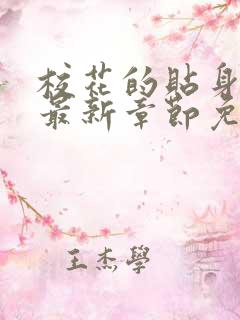 校花的貼身
最新章節免
王杰學